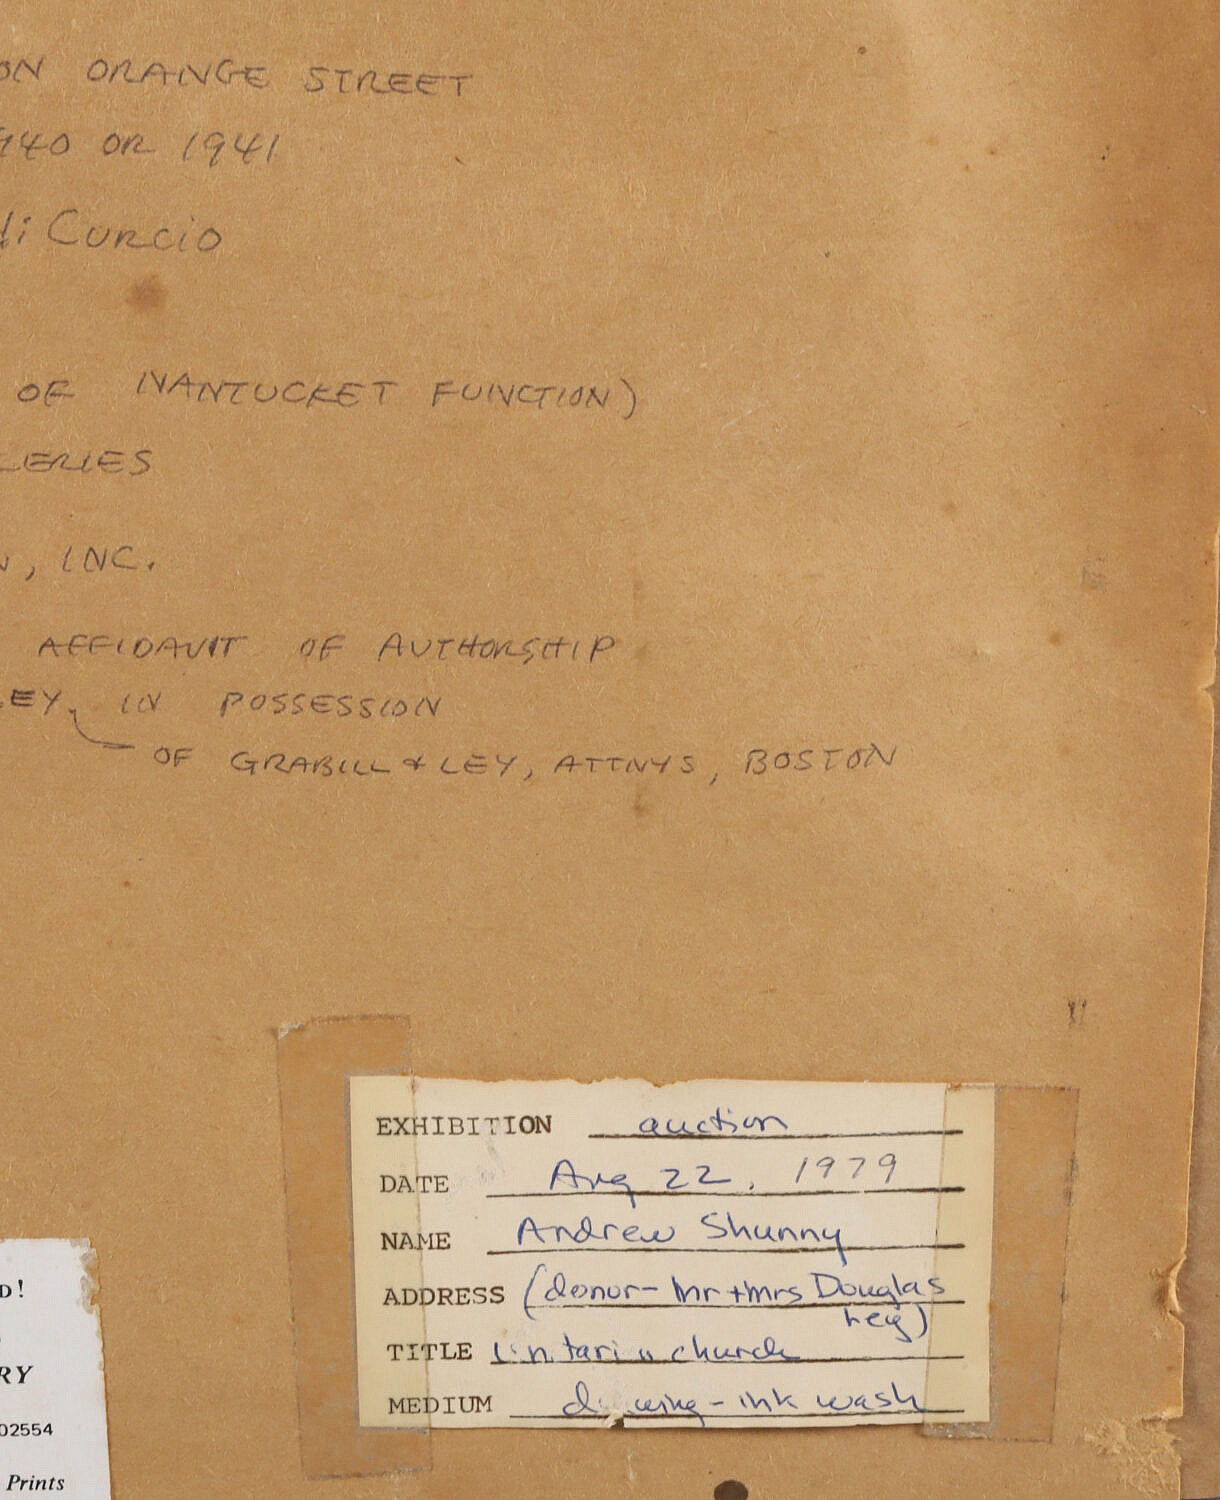 ON ORANGE STREET
940 OR 1941
di Curcio
OF NANTUCKET FUNCTION)
LERIES
, INC.
AFFIDAVIT OF AUTHORSHIP
LEY, IN POSSESSION
OF GRABILL & LEY, ATTNYS, BOSTON
EXHIBITION auction
DATE Aug 22, 1979
NAME Andrew Shunny
ADDRESS (donor- Mr + Mrs Douglas
Ley)
TITLE church
MEDIUM - ink wash
D!
RY
02554
Prints